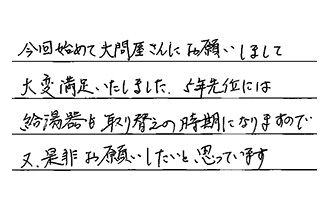 今回始めて大問屋さんにお願いしまして
大変満足いたしました、5年先位には
給湯器も取り替えの時期になりますので
又、是非お願いしたいと思っています